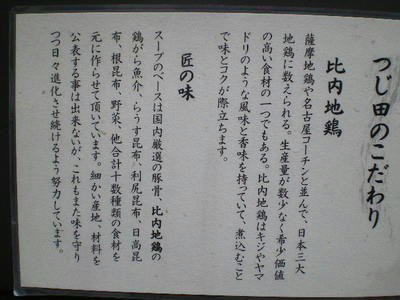 つじ田のこだわり
比内地鶏
薩摩地鶏や名古屋コーチンと並んで、日本三大
地鶏に数えられる。生産量が数少なく希少価値
の高い食材の一つでもある。比内地鶏はキジやヤマ
ドリのような風味と香味を持っていて、煮込むこと
で味とコクが際立ちます。
匠の味
スープのベースは国内厳選の豚骨、比内地鶏の
鶏がら魚介、らうす昆布、利尻昆布、日高昆
布、根昆布、野菜、他合計十数種類の食材を
元に作らせて頂いています。細かい産地、材料を
公表する事は出来ないが、これもまた味を守り
つつ日々進化させ続けるよう努力しています。